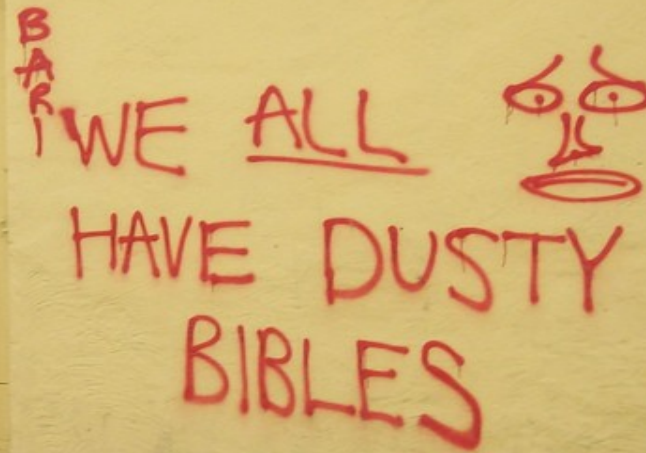 BARI
WE ALL
HAVE DUSTY
BIBLES